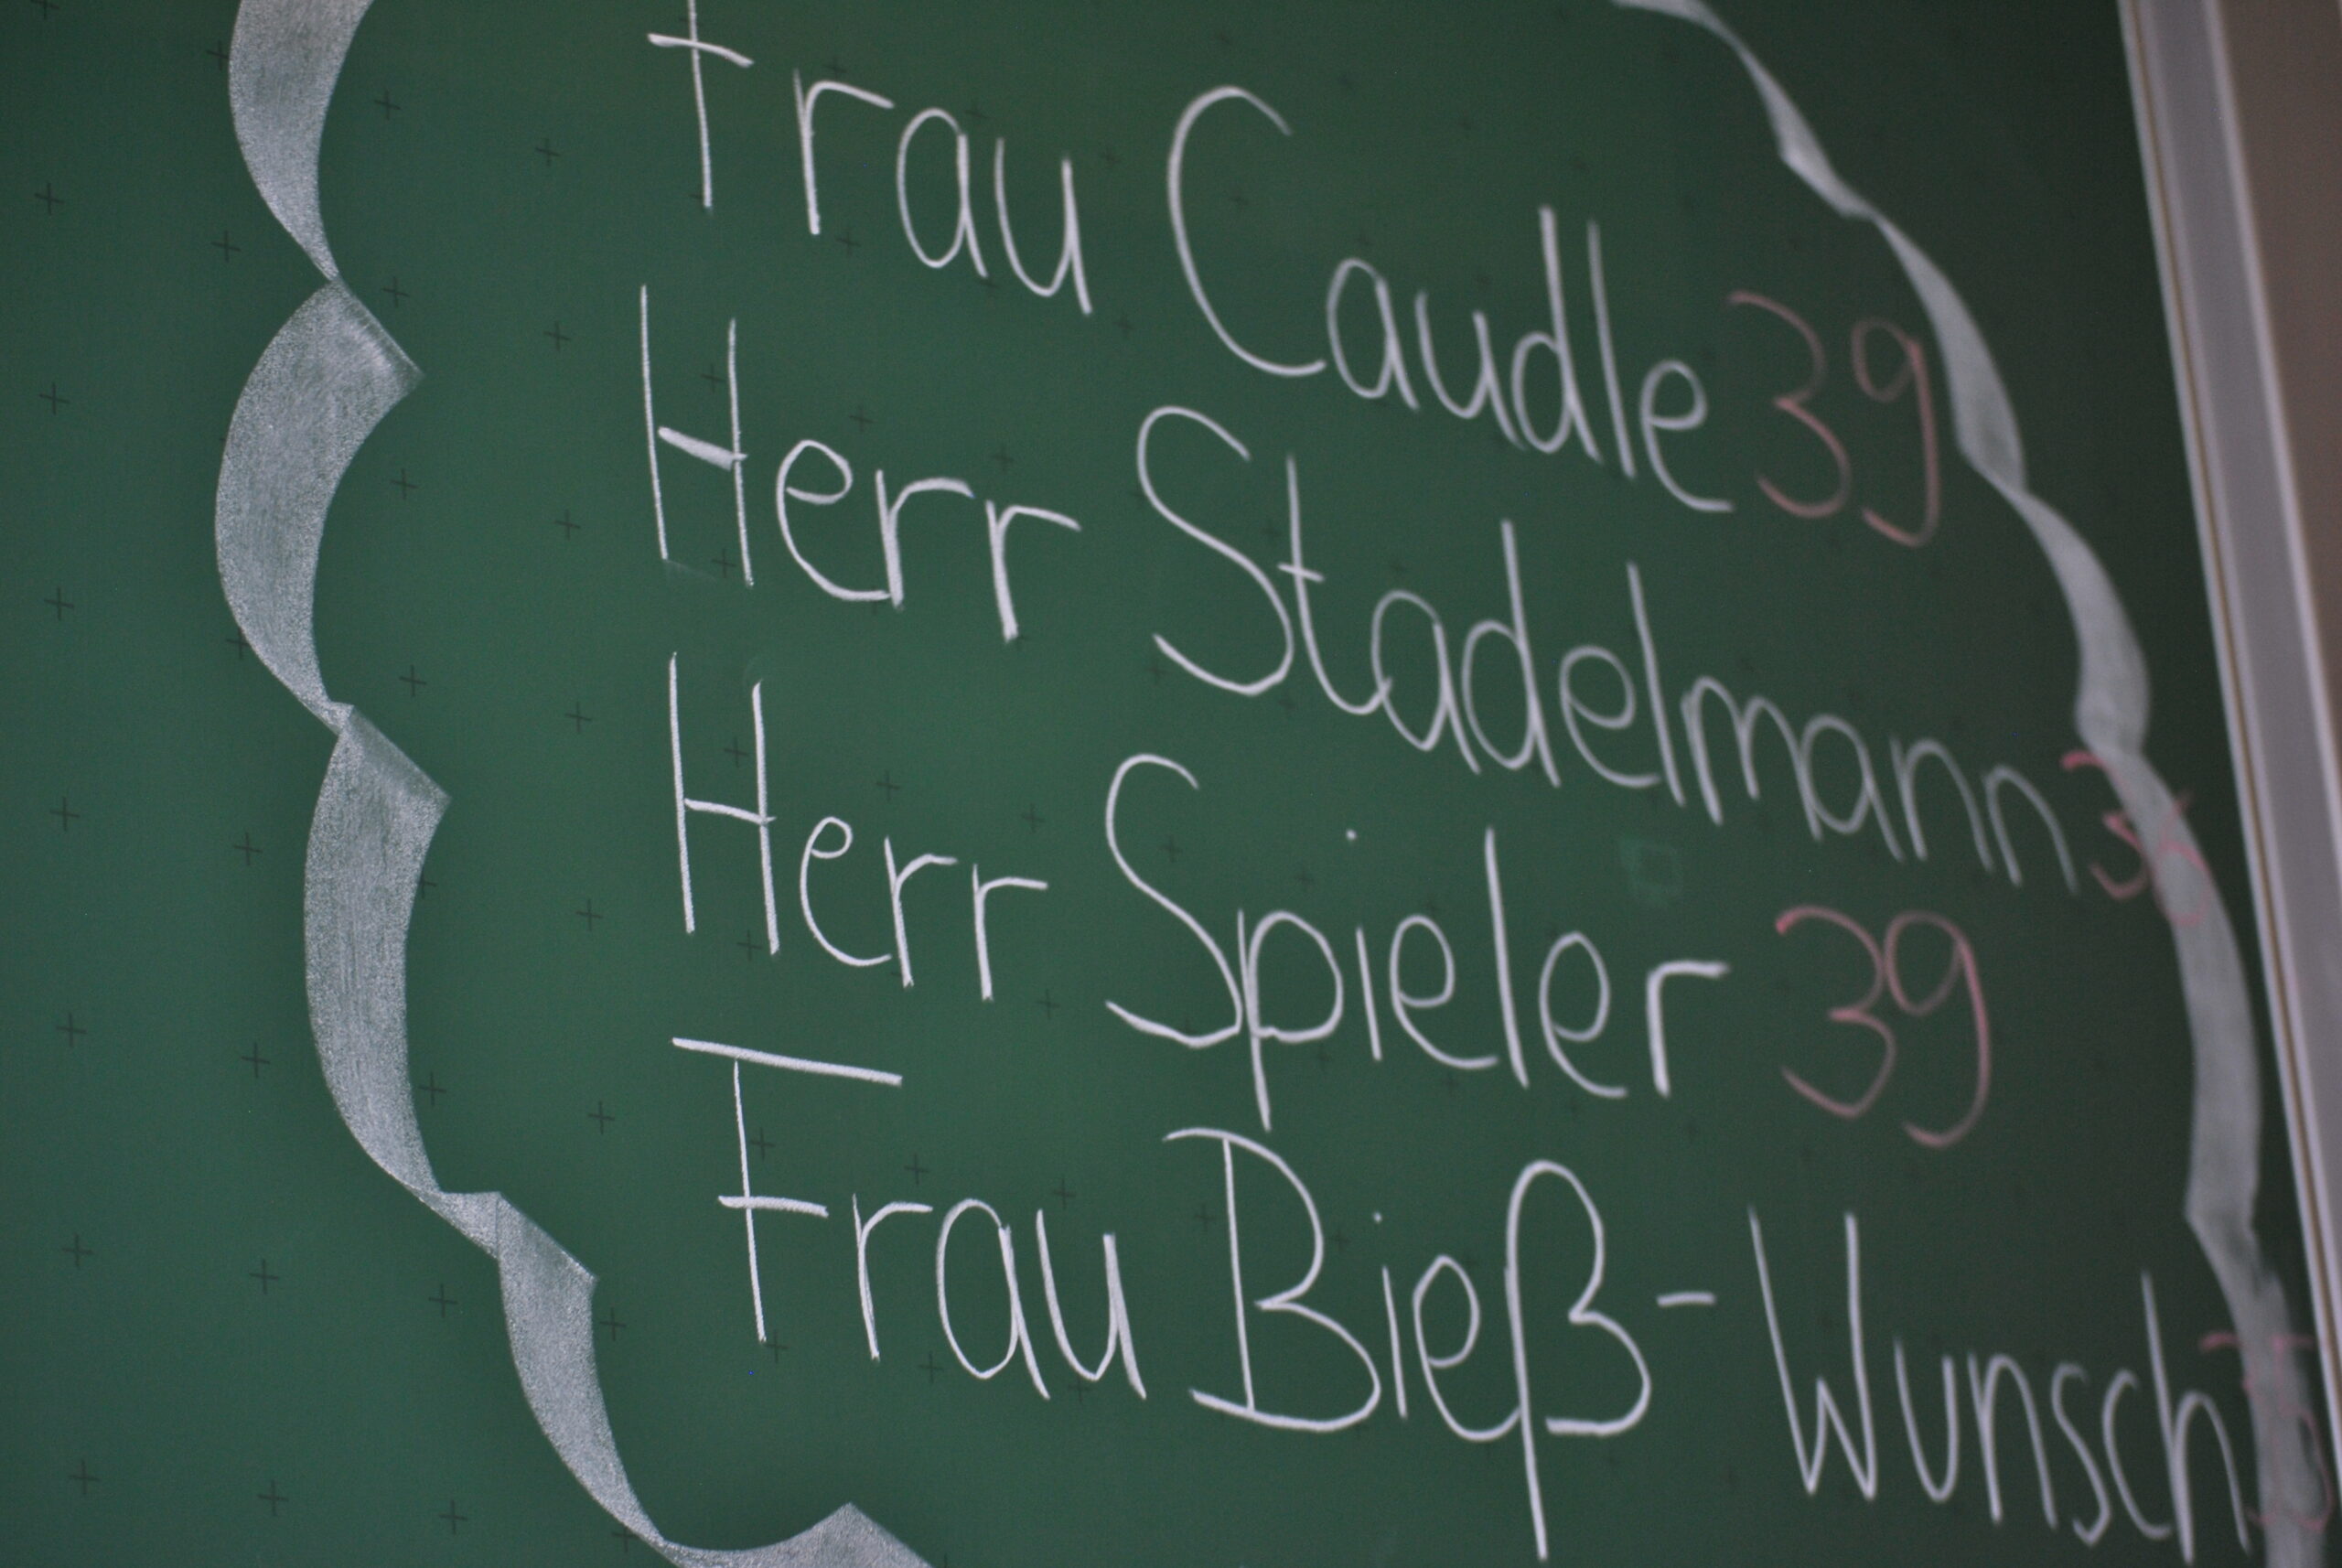 Frau Caudle 39
Herr Stadelmann 36
Herr Spieler 39
Frau Bieß-Wunsch